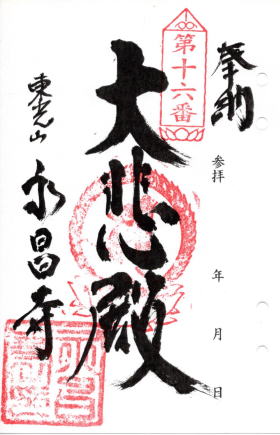 奉納
参拝 年 月 日
第十六番
大悲殿
東光山
永昌寺